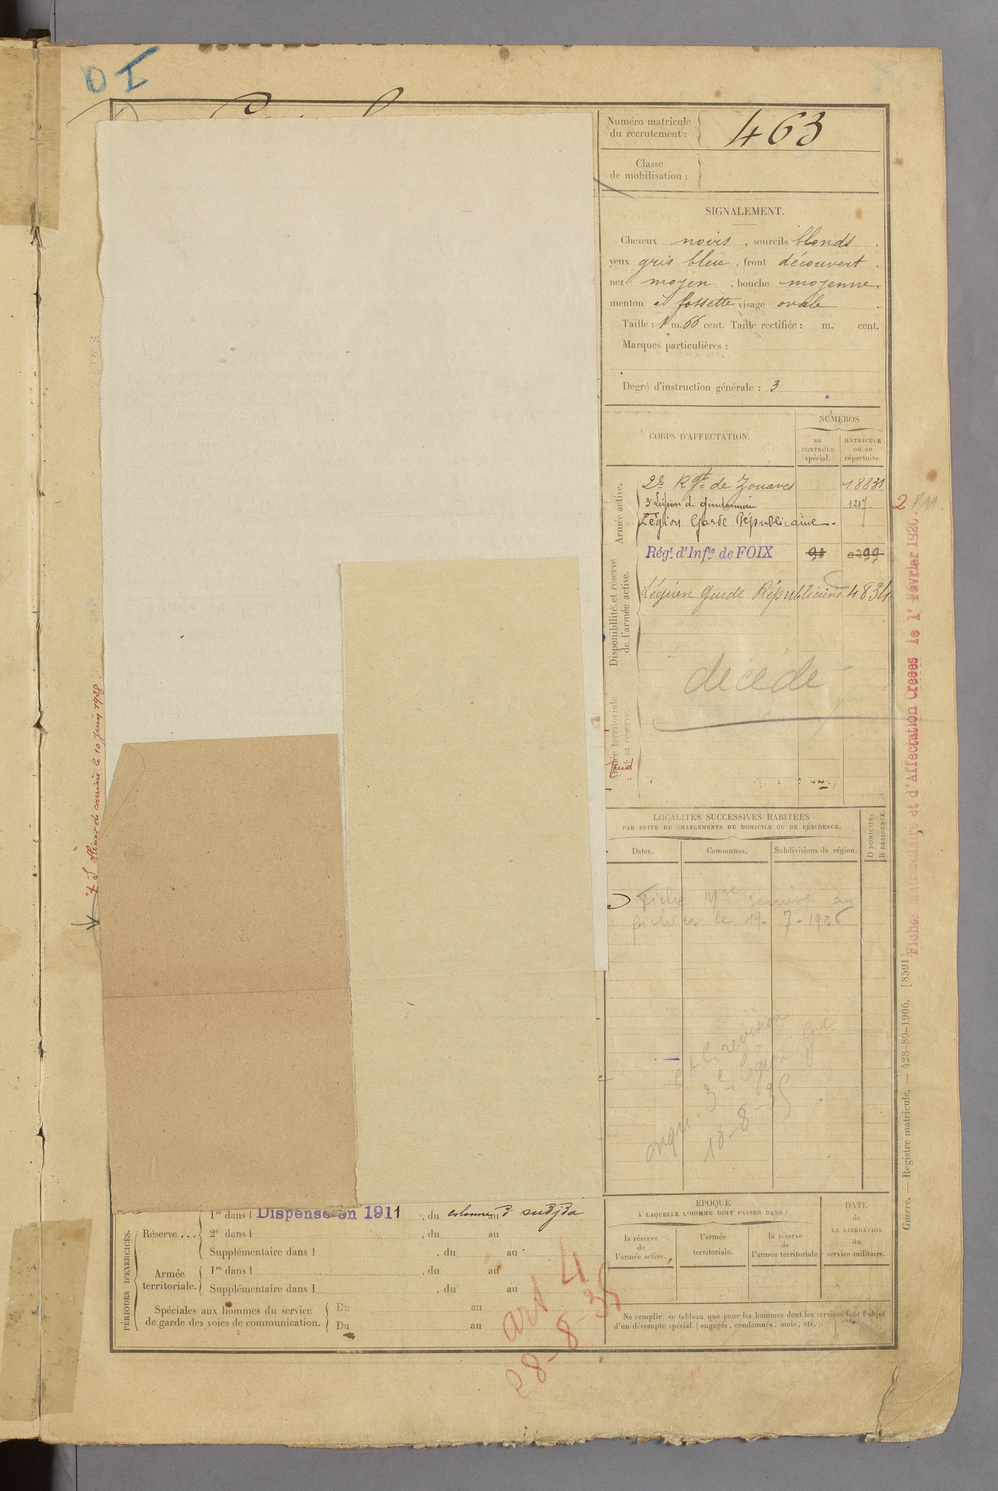 OI
Numéro matricule
du recrutement :
463
Classe
de mobilisation :
SIGNALEMENT.
Cheveux noirs, sourcils blonds,
yeux gris bleu, front découvert,
nez moyen, bouche moyenne,
menton à fossette visage ovale
Taille : 1 m. 66 cent. Taille rectifiée : m. cent.
Marques particulières :
Degré d'instruction générale : 3
CORPS D'AFFECTATION.
NUMÉROS
au
CONTRÔLE
spécial.
MATRICULE
ou au
répertoire.
Armée active.
2e Rgt de Zouaves 18831
3e Légion de gendarmerie 1217
Légion Garde Républicaine.
Disponibilité et réserve
de l'armée active.
Régt d'Infie de FOIX 98 0299
Légion Garde Républicaine 4834
décédé
LOCALITÉS SUCCESSIVES HABITÉES
PAR SUITE DE CHANGEMENTS DE DOMICILE OU DE RÉSIDENCE.
Dates.
Communes.
Subdivisions de région.
D DOMICILE.
R RÉSIDENCE.
Fiche
fichier le 19-7-1926
révision
3e légion
18-8-35
2
Fiches matricule et d'Affectation Créées le 1er Février 1926
Guerre. — Registre matricule. — 428-89-1906. [8591]
le 10 Juin 1928
PÉRIODES D'EXERCICES.
Réserve ...
1re dans l Dispensé en 1911, du colonne au 3
2e dans l , du au
Supplémentaire dans l , du au
Armée
territoriale.
1re dans l , du au
Supplémentaire dans l , du au
Spéciales aux hommes du service
de garde des voies de communication.
Du au
Du au
art 4
28-8-35
ÉPOQUE
À LAQUELLE L'HOMME DOIT PASSER DANS :
la réserve
de
l'armée active.
l'armée
territoriale.
la réserve
de
l'armée territoriale
DATE
de
LA LIBÉRATION
du
service militaire.
Ne remplir ce tableau que pour les hommes dont les services font l'objet
d'un décompte spécial (engagés, condamnés, omis, etc.).